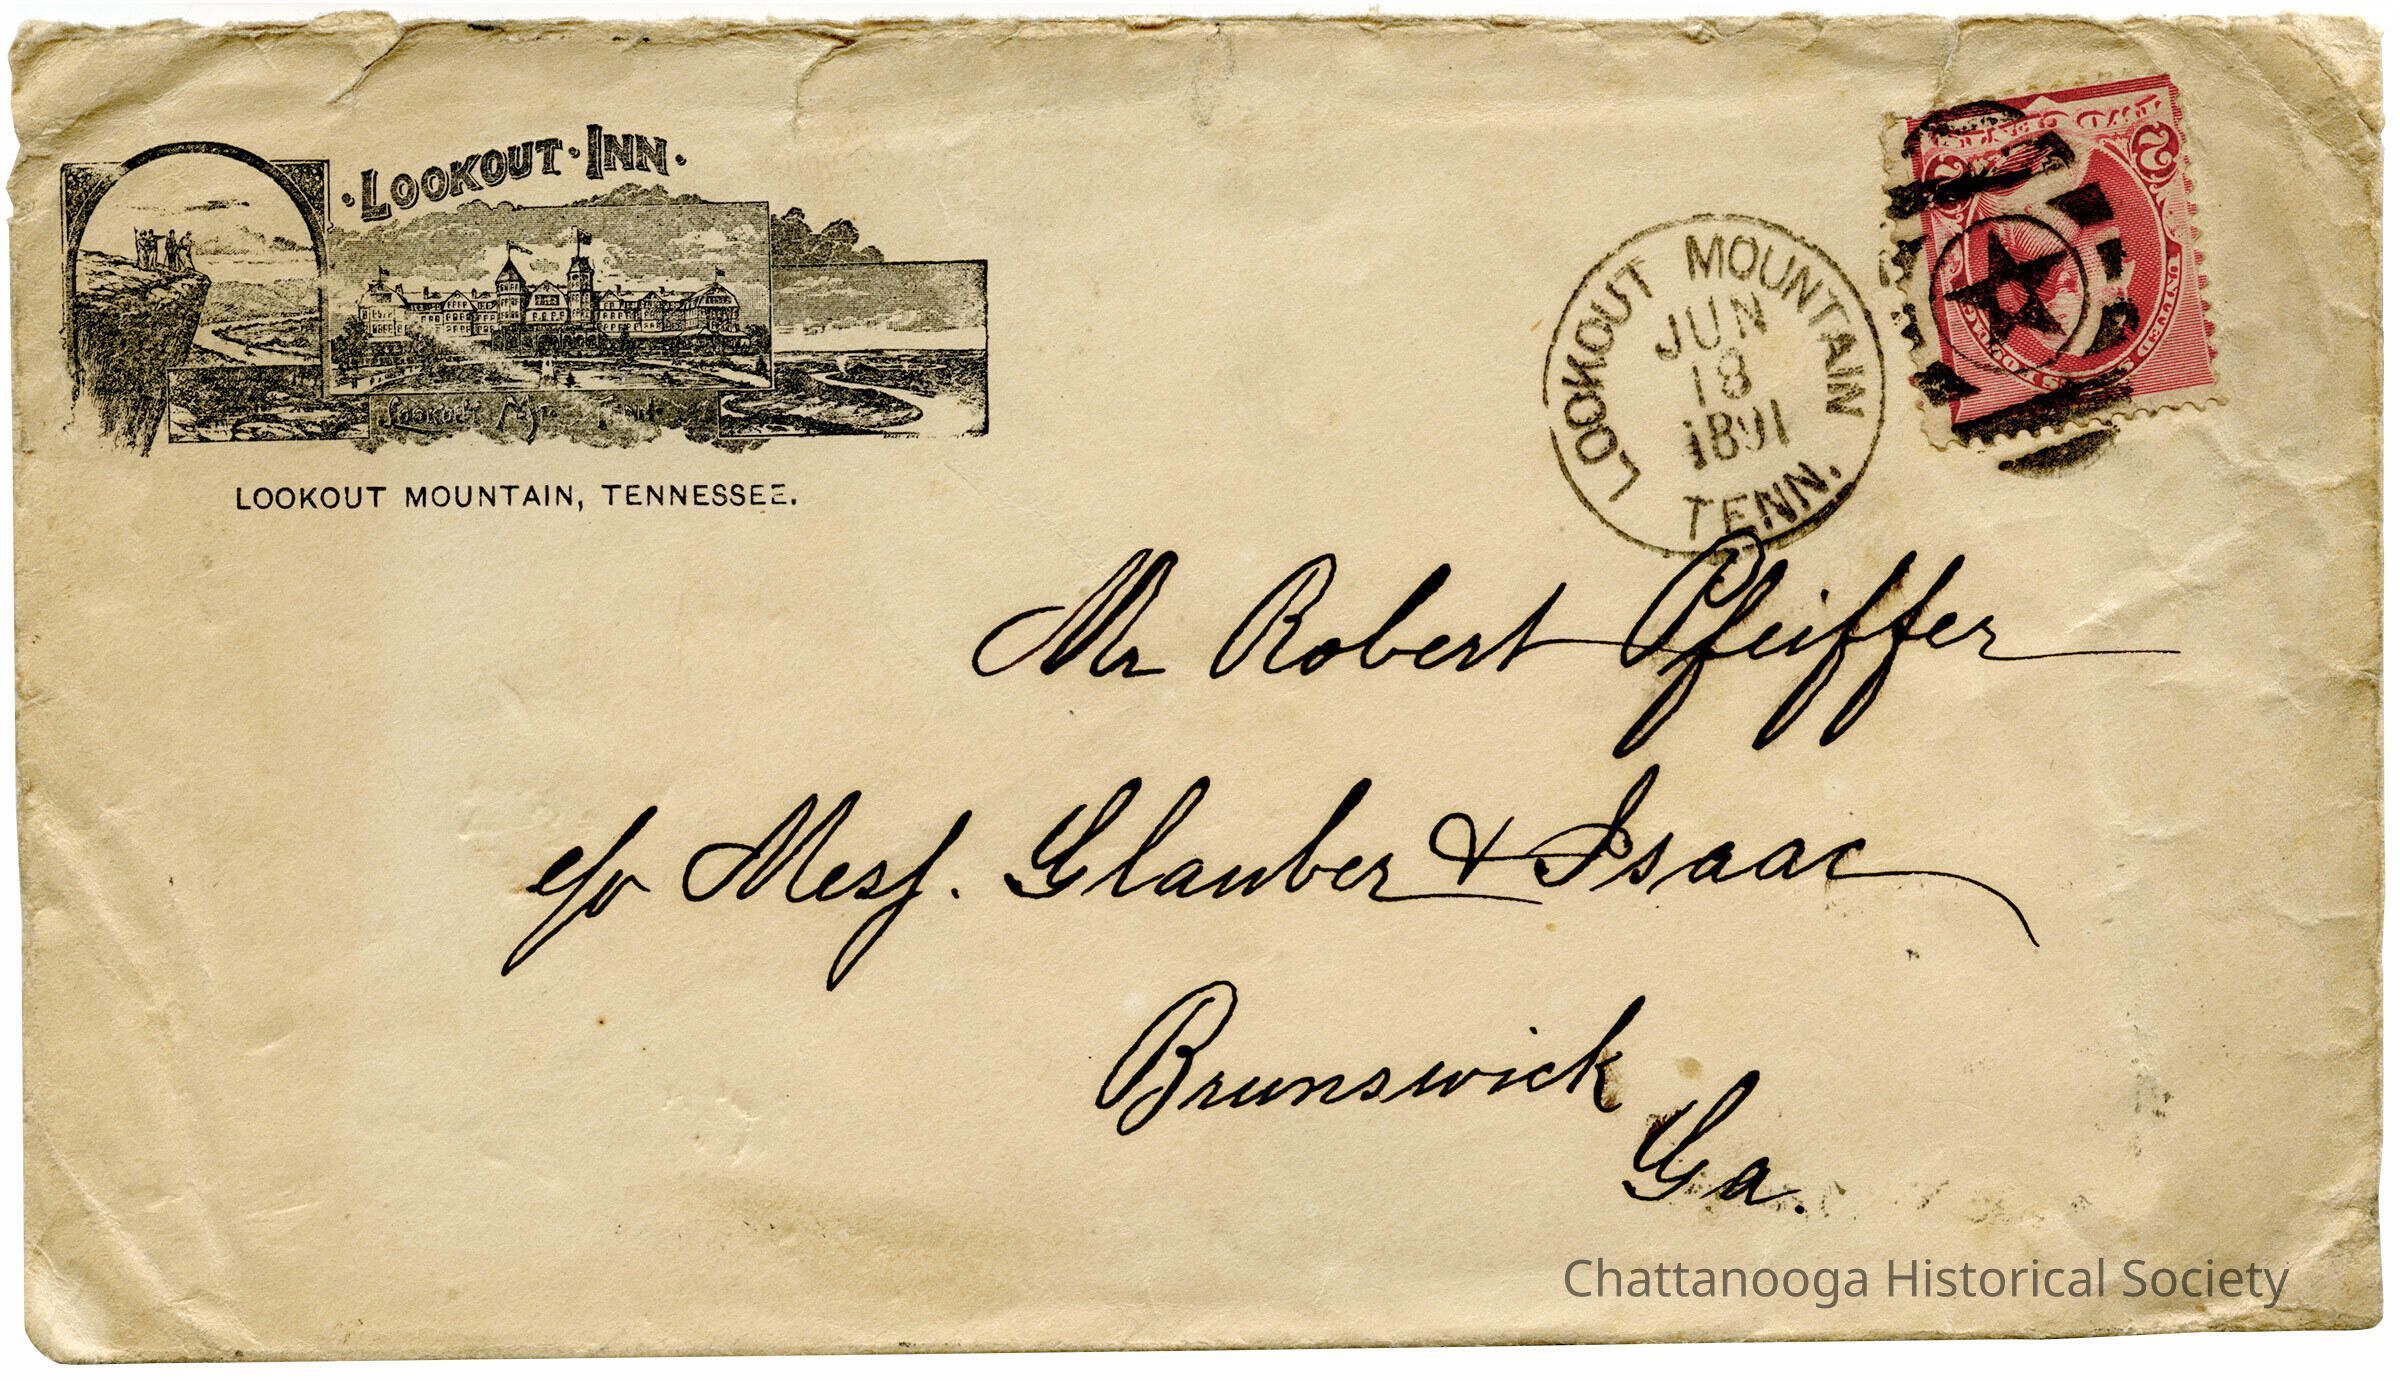 · LOOKOUT · INN ·
Lookout Mt. Tenn.
LOOKOUT MOUNTAIN, TENNESSEE.
LOOKOUT MOUNTAIN
JUN
18
1891
TENN.
2 2
UNITED
Mr Robert Pfeiffer
c/o Mess. Glauber & Isaac
Brunswick
Ga.
Chattanooga Historical Society